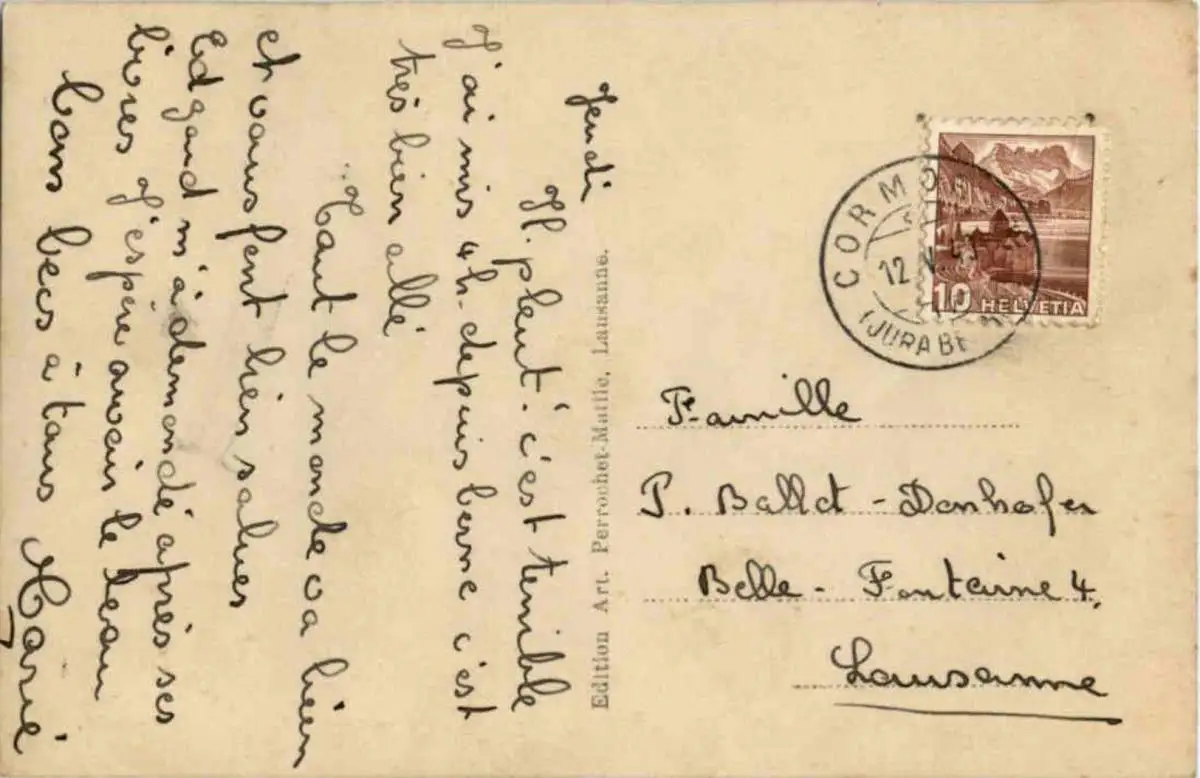 Jeudi
Il pleut. c'est terrible
J'ai mis 4h. depuis berne c'est
très bien allé
Tout le monde va bien
et vous font bien salues
Edgard m'à demandé après ses
livres J'espère avoir le beau
bons becs à tous Marie
Edition Art. Perrochet-Matile, Lausanne.
CORMO
12
(JURA BE
10 HELVETIA
Famille
P. Ballet - Donhofer
Belle - Fontaine 4.
Lausanne